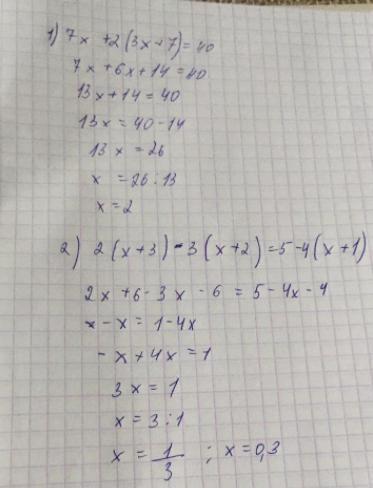 1) 7x + 2(3x+7) = 40
7x + 6x + 14 = 40
13x + 14 = 40
13x = 40 - 14
13x = 26
x = 26 : 13
x = 2
2) 2(x+3) - 3(x+2) = 5 - 4(x+1)
2x + 6 - 3x - 6 = 5 - 4x - 4
- x = 1 - 4x
- x + 4x = 1
3x = 1
x = 3 : 1
x = 1/3 ; x = 0,3